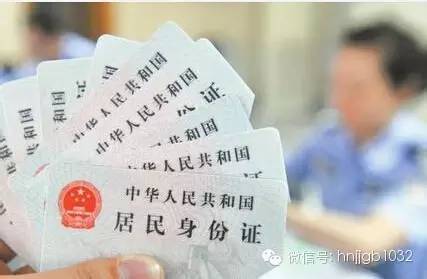 中华人民共和国
中华人民共和国
中华人民共和国
居民身份证
中华人民共和国
居民身份证
微信号: hnjjgb1032